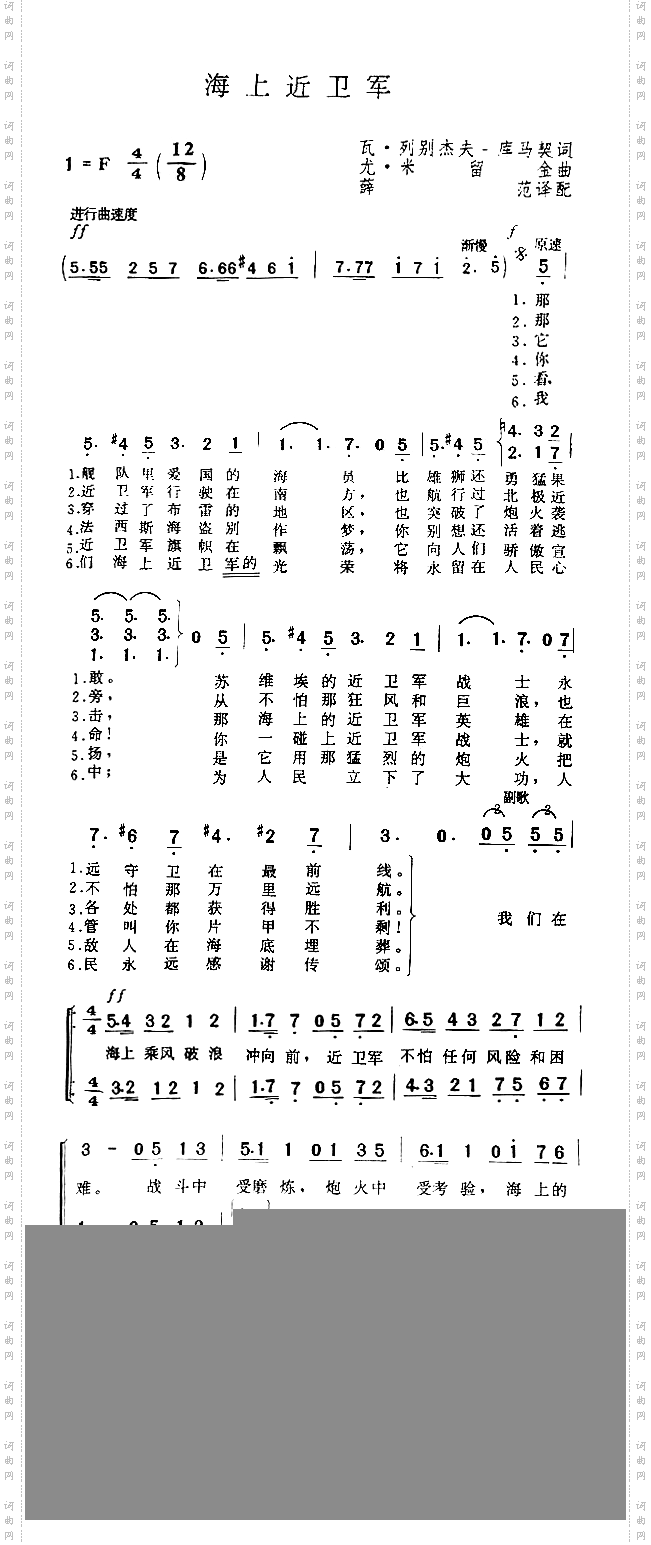 海上近卫军
1=F 4/4 (12/8)
瓦·列别杰夫-库马契词
尤·米留金曲
薛范译配
进行曲速度
ff
渐慢 f 原速
(5·55 2 5 7 6·66 #4 6 i | 7·77 i 7 i 2· 5) 5 |
1.那
2.那
3.它
4.你
5.看,
6.我
5· #4 5 3· 2 1 | 1· 1· 7· 0 5 | 5· #4 5 4· 3 2 |
2· 1 7
1.舰队里爱国的海员比雄狮还勇猛果
2.近卫军行驶在南方,也航行过北极近
3.穿过了布雷的地区,也突破了炮火袭
4.法西斯海盗别作梦,你别想还活着逃
5.近卫军旗帜在飘荡,它向人们骄傲宣
6.们海上近卫军的光荣将永留在人民心
5· 5· 5·
3· 3· 3· 0 5 | 5· #4 5 3· 2 1 | 1· 1· 7· 0 7 |
1· 1· 1·
1.敢。苏维埃的近卫军战士永
2.旁,从不怕那狂风和巨浪,也
3.击,那海上的近卫军英雄在
4.命!你一碰上近卫军战士,就
5.扬,是它用那猛烈的炮火把
6.中;为人民立下了大功,人
副歌
7· #6 7 #4· #2 7 | 3· 0· 0 5 5 5 |
1.远守卫在最前线。
2.不怕那万里远航。
3.各处都获得胜利。
4.管叫你片甲不剩!
5.敌人在海底埋葬。
6.民永远感谢传颂。
我们在
ff
4/4 5·4 3 2 1 2 | 1·7 7 0 5 7 2 | 6·5 4 3 2 7 1 2 |
海上乘风破浪冲向前,近卫军不怕任何风险和困
4/4 3·2 1 2 1 2 | 1·7 7 0 5 7 2 | 4·3 2 1 7 5 6 7 |
3 - 0 5 1 3 | 5·1 1 0 1 3 5 | 6·1 1 0 i 7 6 |
难。战斗中受磨炼,炮火中受考验,海上的